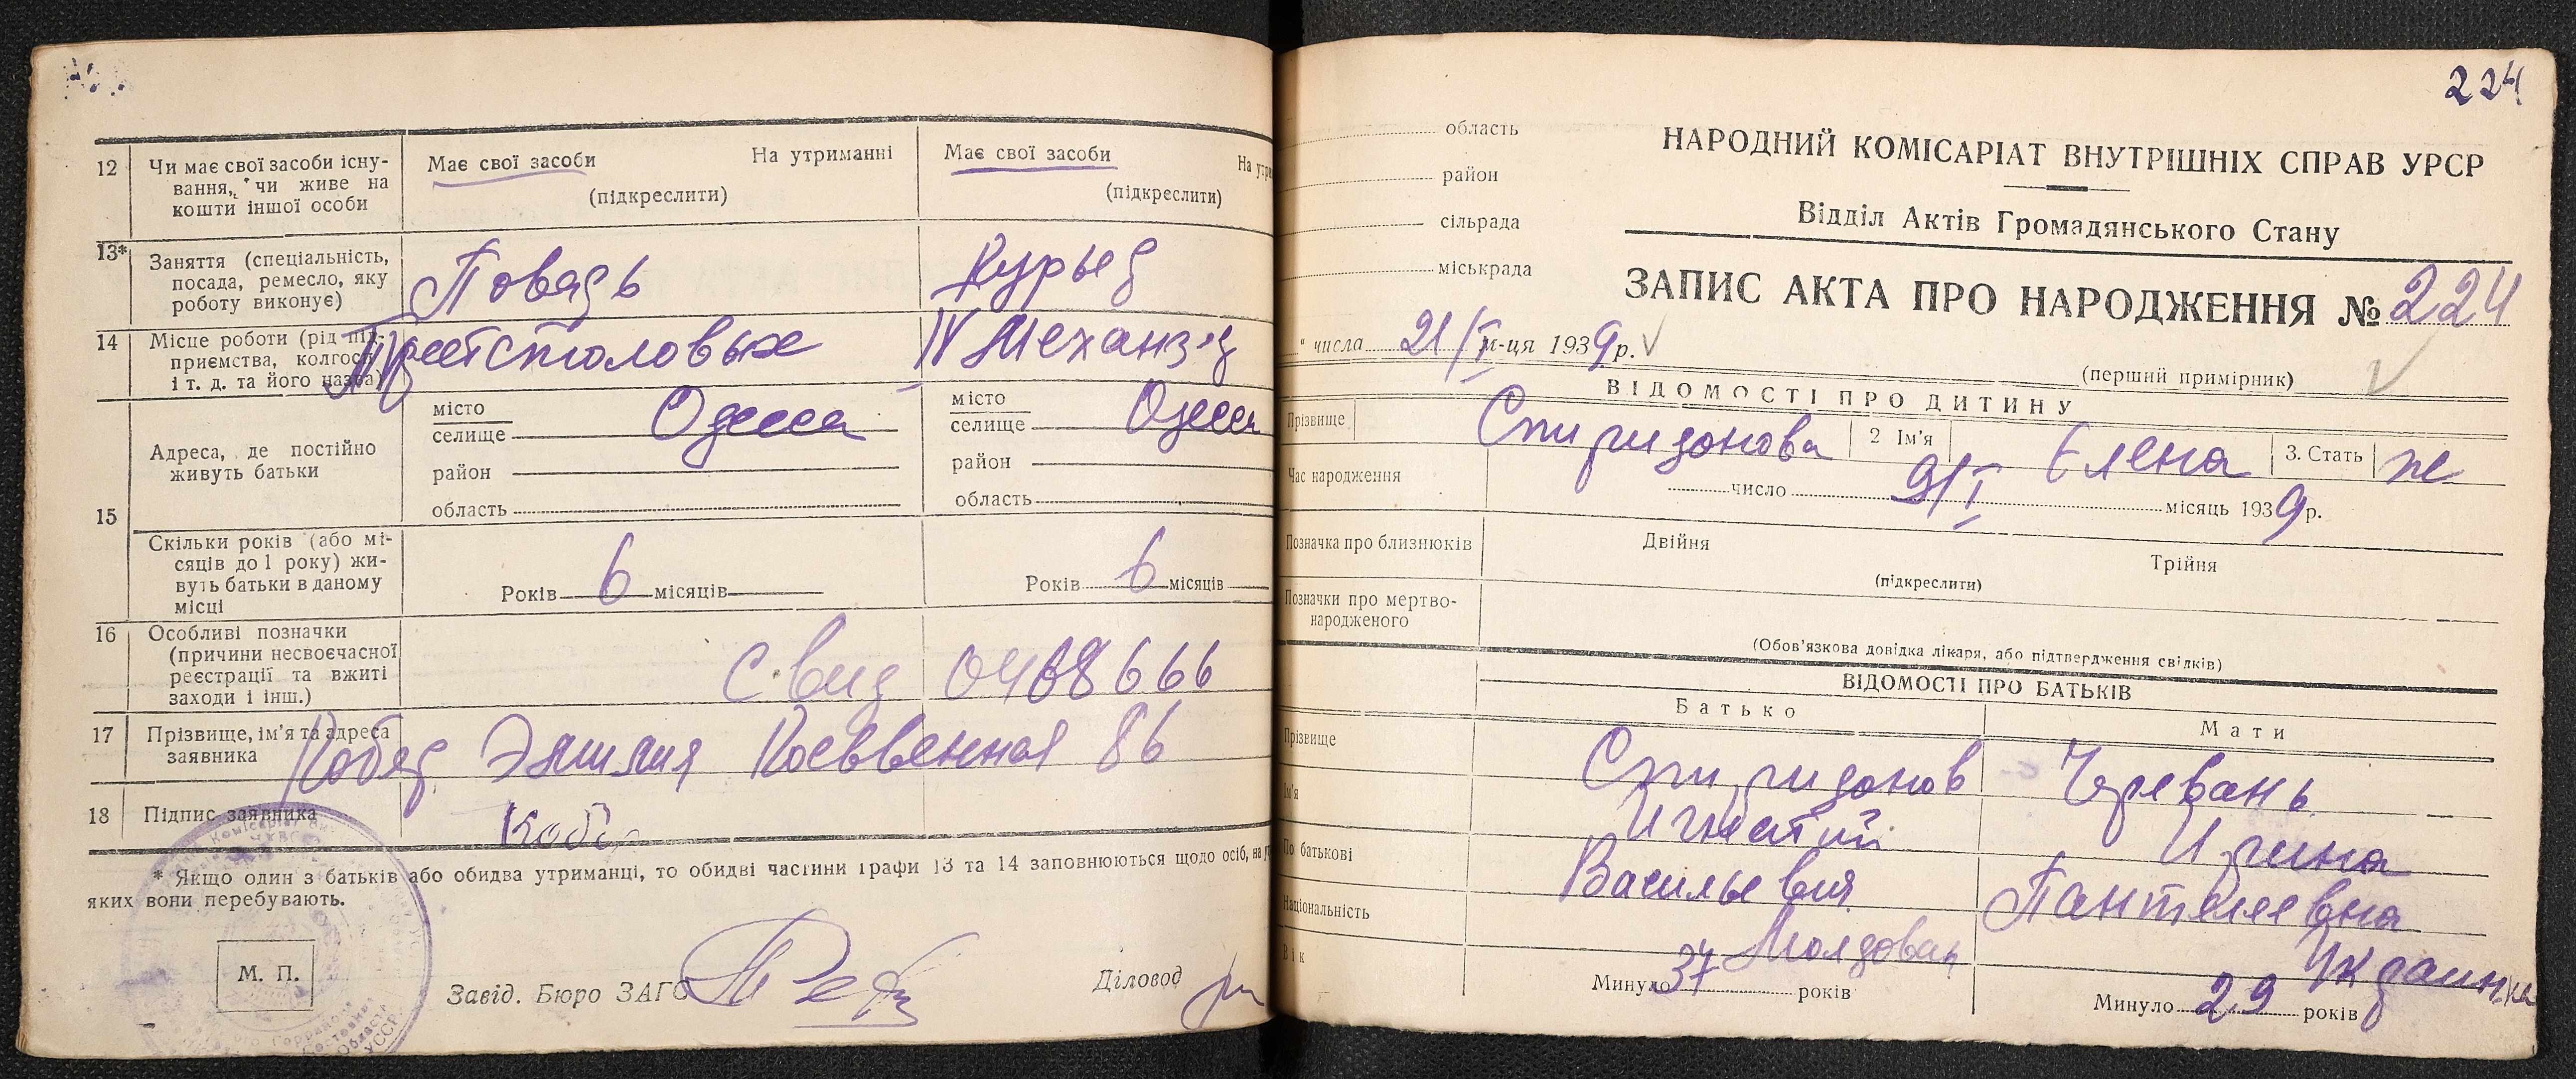 12 Чи має свої засоби існу-
вання, чи живе на
кошти іншої особи
Має свої засоби На утриманні
(підкреслити)
Має свої засоби
(підкреслити)
13* Заняття (спеціальність,
посада, ремесло, яку
роботу виконує)
Повар Курьер
14 Місце роботи (рід під-
приємства, колгосп
і т. д. та його назва)
Трест столовых IV Механз-д
15 Адреса, де постійно
живуть батьки
місто
селище Одесса
район
область
місто
селище Одесса
район
область
Скільки років (або мі-
сяців до 1 року) жи-
вуть батьки в даному
місці
Років 6 місяців
Років 6 місяців
16 Особливі позначки
(причини несвоєчасної
реєстрації та вжиті
заходи і інш.)
Свид 0468666
17 Прізвище, ім'я та адреса
заявника
Эмилия 86
18 Підпис заявника
* Якщо один з батьків або обидва утриманці, то обидві частини графи 13 та 14 заповнюються щодо осіб, на
яких вони перебувають.
М. П.
Завід. Бюро ЗАГС
Діловод
224
область
район
сільрада
міськрада
НАРОДНИЙ КОМІСАРІАТ ВНУТРІШНІХ СПРАВ УРСР
Відділ Актів Громадянського Стану
ЗАПИС АКТА ПРО НАРОДЖЕННЯ № 224
" числа 21/I м-ця 1939 р.
(перший примірник)
ВІДОМОСТІ ПРО ДИТИНУ
Прізвище Спиридонова 2 Ім'я Елена 3. Стать ж
Час народження
число 9/I місяць 1939 р.
Позначка про близнюків Двійня Трійня
(підкреслити)
Позначки про мертво-
народженого
(Обов'язкова довідка лікаря, або підтвердження свідків)
ВІДОМОСТІ ПРО БАТЬКІВ
Батько Мати
Прізвище Спиридонов Черевань
Ім'я Игнатий Ирина
По батькові Васильевич Пантелеевна
Національність Молдован Украинка
Вік Минуло 37 років Минуло 29 років